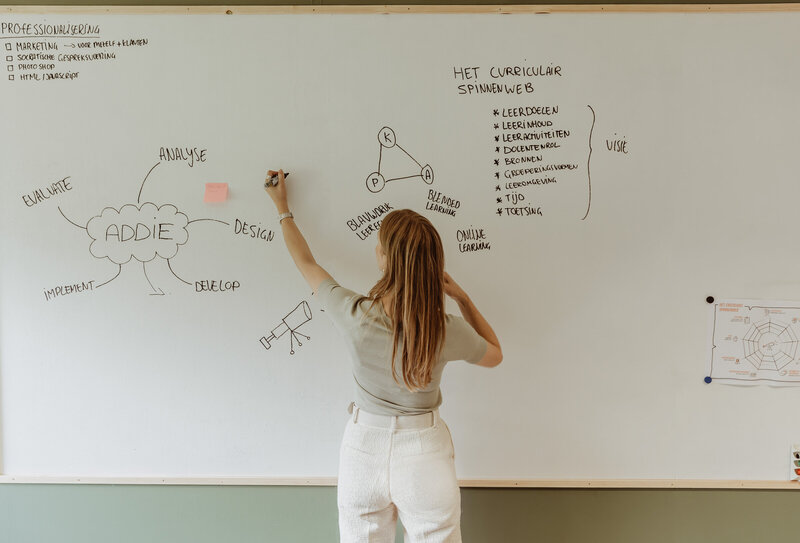 PROFESSIONALISERING
MARKETING → VOOR MEZELF + KLANTEN
SOCRATISCHE GESPREKSVOERING
PHOTOSHOP
HTML/JAVASCRIPT
HET CURRICULAIR
SPINNENWEB
* LEERDOELEN
* LEERINHOUD
* LEERACTIVITEITEN
* DOCENTENROL
* BRONNEN
* GROEPERINGSVORMEN
* LEEROMGEVING
* TIJD
* TOETSING
VISIE
K
P
A
BLENDED
LEARNING
BLAUWDRUK
ONLINE
LEARNING
ANALYSE
EVALUATE
ADDIE
DESIGN
IMPLEMENT
DEVELOP